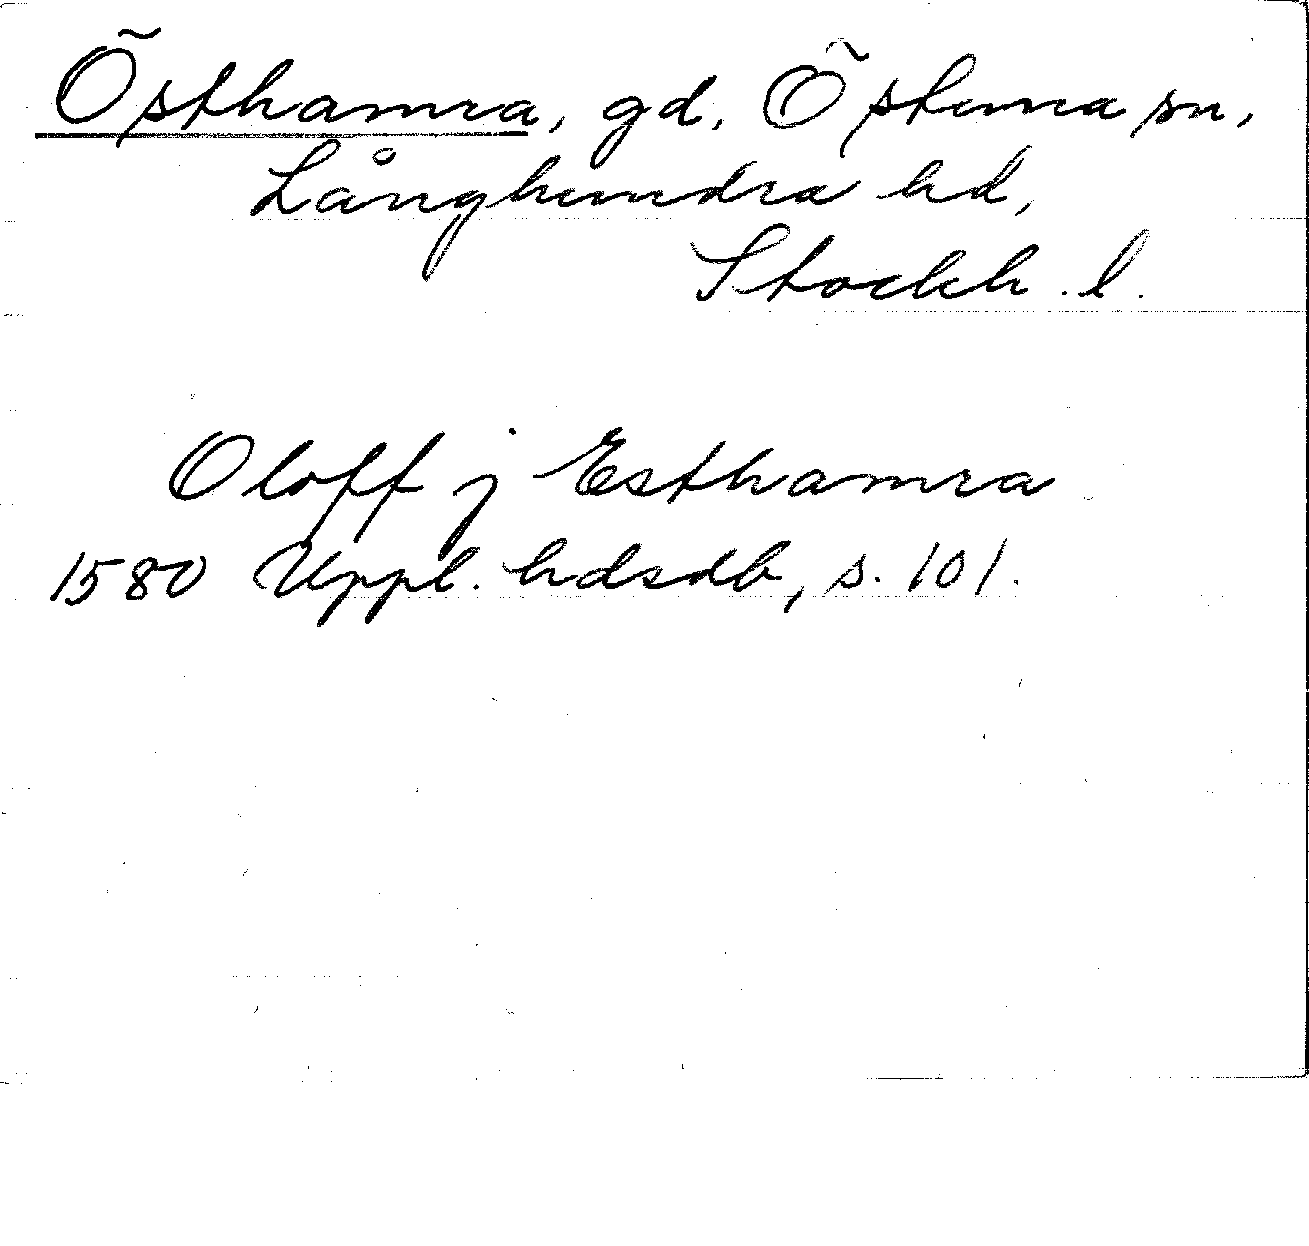 Östhamra, gd, Östuna sn,
Långhundra hd,
Stockh. l.
Oloff j Esthamra
1580 Uppl. hdsdb, s. 101.